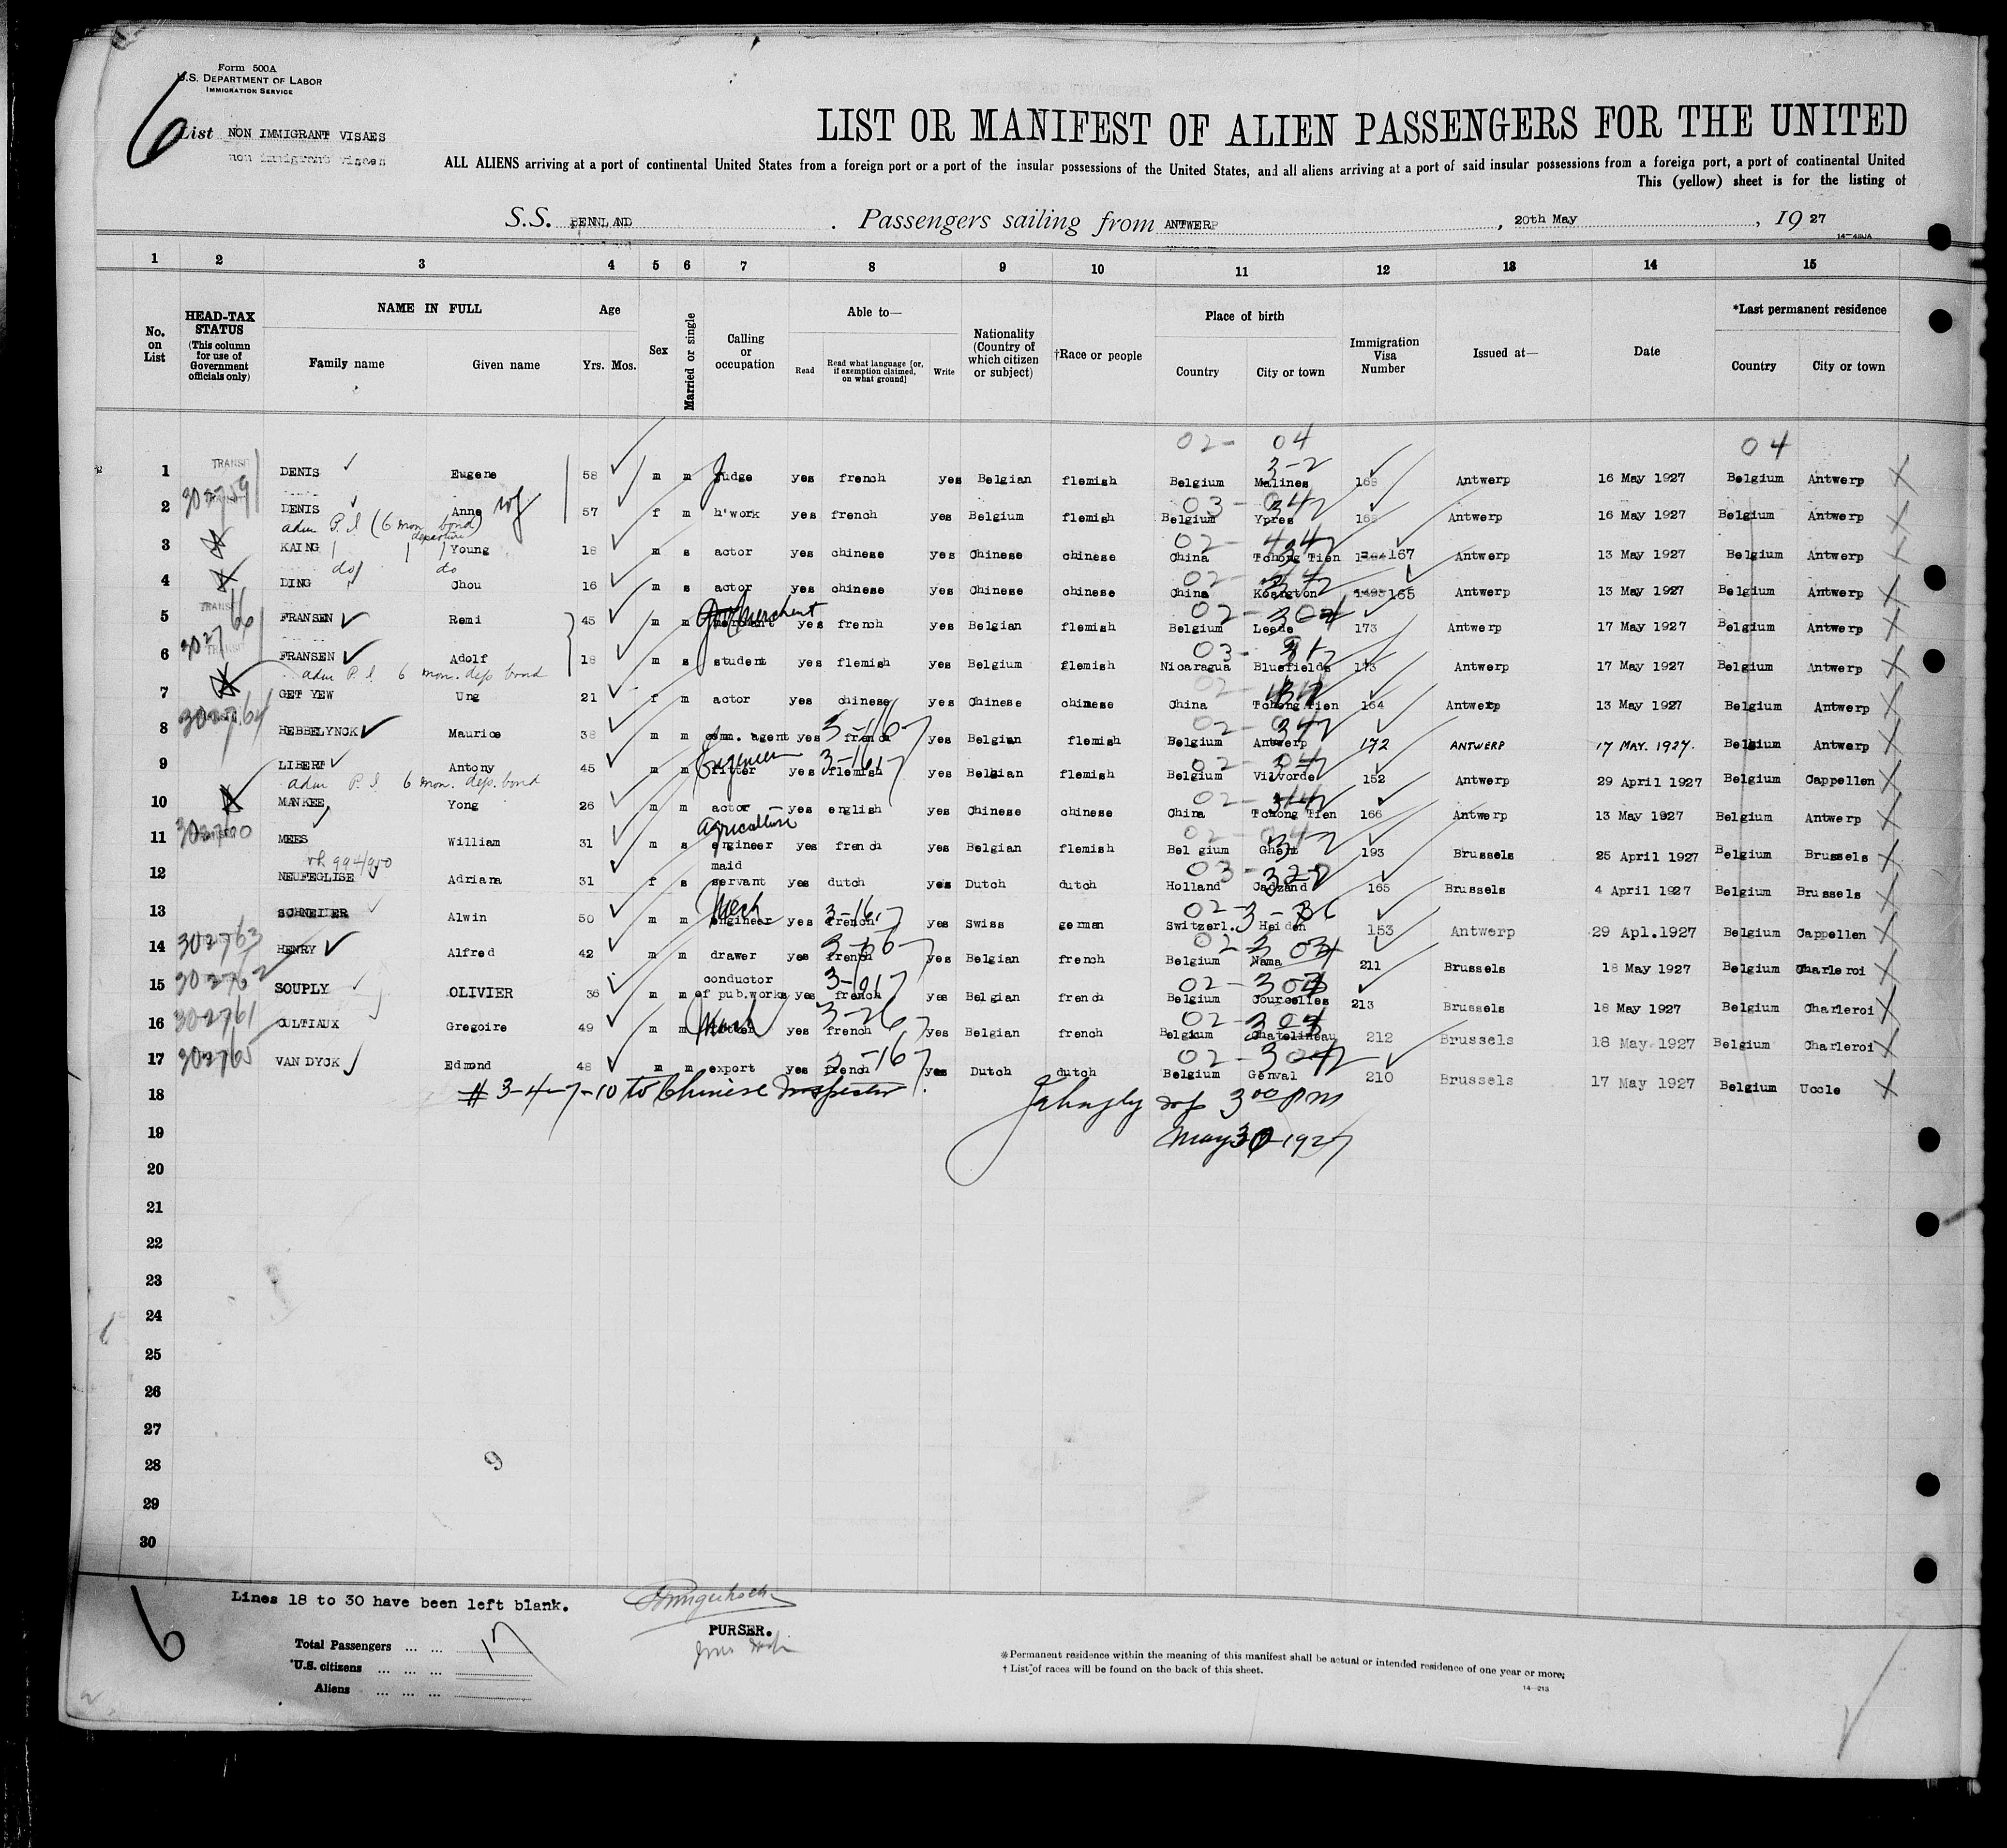 Form 500A
U.S. DEPARTMENT OF LABOR
IMMIGRATION SERVICE
6
List NON IMMIGRANT VISAES
non immigrant visaes
LIST OR MANIFEST OF ALIEN PASSENGERS FOR THE UNITED
ALL ALIENS arriving at a port of continental United States from a foreign port or a port of the insular possessions of the United States, and all aliens arriving at a port of said insular possessions from a foreign port, a port of continental United
This (yellow) sheet is for the listing of
S.S. PENNLAND . Passengers sailing from ANTWERP , 20th May , 19 27
1 2 3 4 5 6 7 8 9 10 11 12 13 14 15
No. on List
HEAD-TAX STATUS (This column for use of Government officials only)
NAME IN FULL
Family name Given name
Age
Yrs. Mos.
Sex
Married or single
Calling or occupation
Able to—
Read Read what language [or, if exemption claimed, on what ground] Write
Nationality (Country of which citizen or subject)
†Race or people
Place of birth
Country City or town
Immigration Visa Number
Issued at—
Date
*Last permanent residence
Country City or town
02- 04 04
1 TRANSIT DENIS Eugene 58 m m Judge yes french yes Belgian flemish Belgium Malines Antwerp 16 May 1927 Belgium Antwerp
2 302759 DENIS Anne 57 f m h'work yes french yes Belgium flemish Belgium Ypres Antwerp 16 May 1927 Belgium Antwerp
adm P.I (6 mon bond) departure
3 KAING Young 18 m s actor yes chinese yes Chinese chinese China Tchong Tien 167 Antwerp 13 May 1927 Belgium Antwerp
do do
4 DING Chou 16 m s actor yes chinese yes Chinese chinese China Koangton 165 Antwerp 13 May 1927 Belgium Antwerp
5 TRANSIT FRANSEN Remi 45 m m merchant yes french yes Belgian flemish Belgium Leede 173 Antwerp 17 May 1927 Belgium Antwerp
6 TRANSIT FRANSEN Adolf 18 m s student yes flemish yes Belgium flemish Nicaragua Bluefields 173 Antwerp 17 May 1927 Belgium Antwerp
adm P.I. 6 mon. dep bond
7 GET YEW Ung 21 f m actor yes chinese yes Chinese chinese China Tchong Tien 164 Antwerp 13 May 1927 Belgium Antwerp
8 302764 HEBBELYNCK Maurice 38 m m comm. agent yes french yes Belgian flemish Belgium Antwerp 172 ANTWERP 17 MAY. 1927. Belgium Antwerp
9 LIBERT Antony 45 m m fitter Engineer yes flemish yes Belgian flemish Belgium Vilvorde 152 Antwerp 29 April 1927 Belgium Cappellen
adm P.I. 6 mon. dep. bond
10 MANKEE Yong 26 m m actor yes english yes Chinese chinese China Tchong Tien 166 Antwerp 13 May 1927 Belgium Antwerp
agriculture
11 MEES William 31 m s engineer yes french yes Belgian flemish Belgium Ghent 193 Brussels 25 April 1927 Belgium Brussels
12 NEUFEGLISE Adriana 31 f s maid servant yes dutch yes Dutch dutch Holland Cadzand 165 Brussels 4 April 1927 Belgium Brussels
13 SCHNEITER Alwin 50 m m Mech engineer yes french yes Swiss german Switzerl. Heiden 153 Antwerp 29 Apl.1927 Belgium Cappellen
14 302763 HENRY Alfred 42 m m drawer yes french yes Belgian french Belgium Nama 211 Brussels 18 May 1927 Belgium Charleroi
15 302762 SOUPLY OLIVIER 36 m m conductor of pub.works yes french yes Belgian french Belgium Courcelles 213 Brussels 18 May 1927 Belgium Charleroi
16 302761 CULTIAUX Gregoire 49 m m yes french yes Belgian french Belgium Chatelineau 212 Brussels 18 May 1927 Belgium Charleroi
17 302765 VAN DYCK Edmond 48 m m export yes french yes Dutch dutch Belgium Genval 210 Brussels 17 May 1927 Belgium Uccle
18 # 3-4-7-10 to Chinese Inspector. 3 00 PM
19 May 30 1927
20
21
22
23
24
25
26
27
28
29
30
9
Lines 18 to 30 have been left blank.
PURSER.
6
Total Passengers ... ... 17
*U.S. citizens ... ... ...
Aliens ... ... ...
*Permanent residence within the meaning of this manifest shall be actual or intended residence of one year or more.
† List of races will be found on the back of this sheet.
14—213